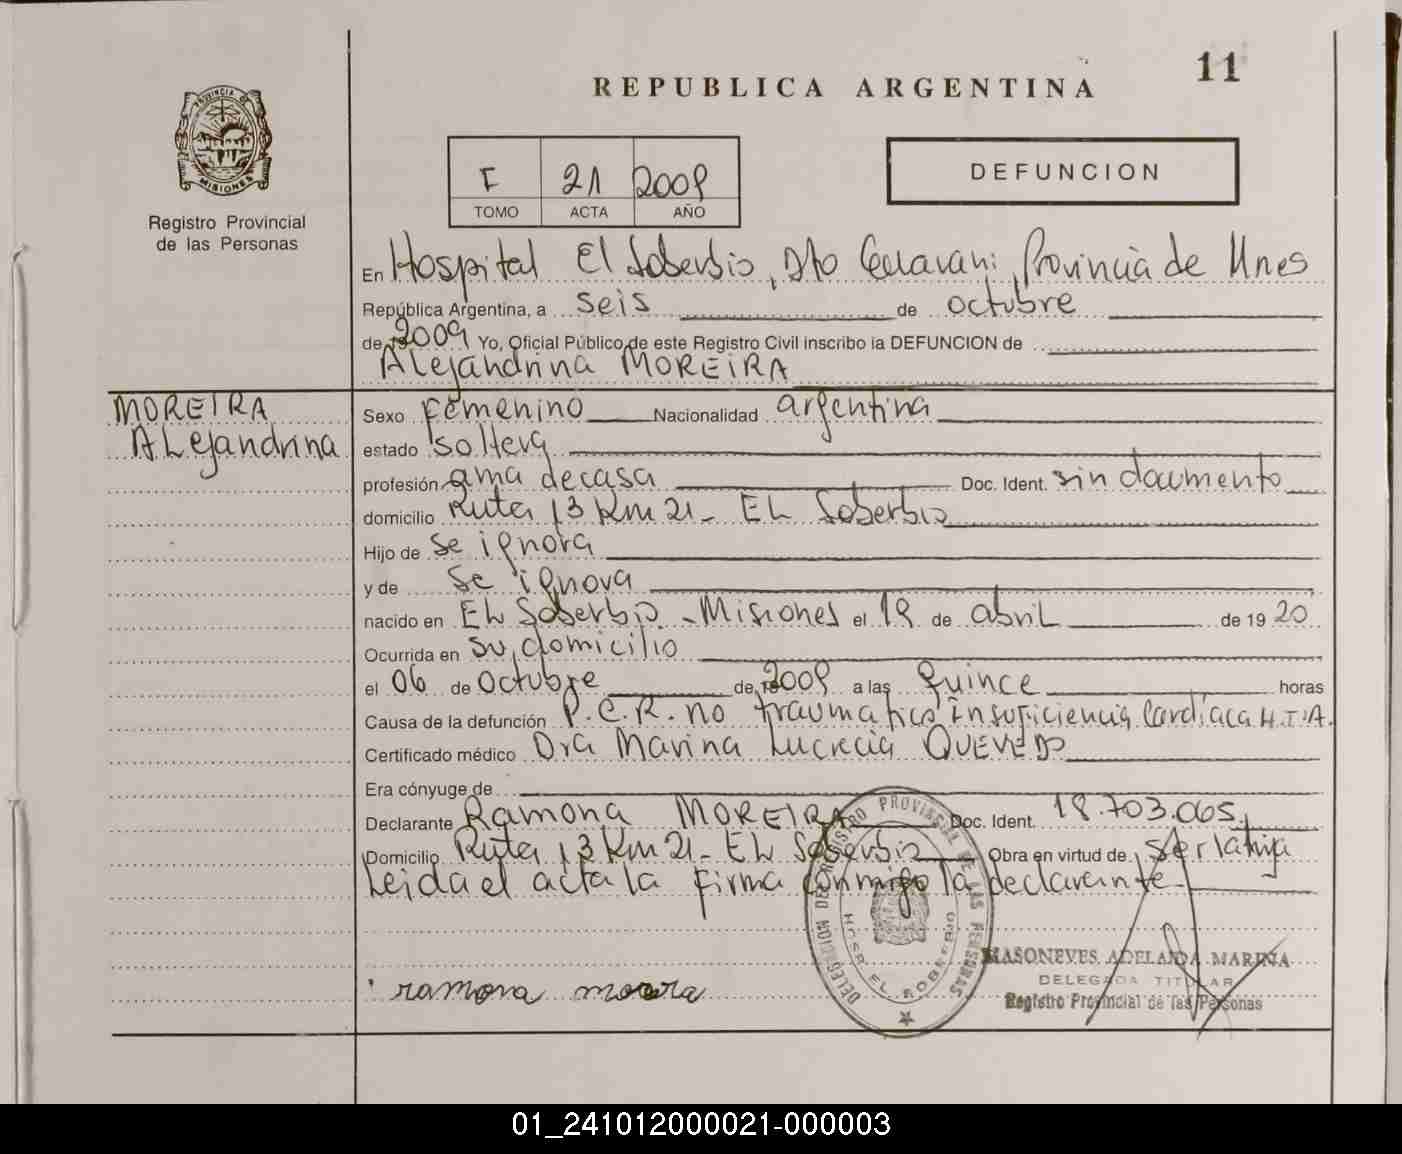 11
REPUBLICA ARGENTINA
PROVINCIA DE
MISIONES
Registro Provincial
de las Personas
DEFUNCION
I 21 2009
TOMO ACTA AÑO
En Hospital El Soberbio, Dto Guarani, Provincia de Mnes
República Argentina, a seis de octubre
de 2009 Yo, Oficial Público de este Registro Civil inscribo la DEFUNCION de
Alejandrina MOREIRA
MOREIRA
Alejandrina
Sexo femenino Nacionalidad argentina
estado soltera
profesión ama de casa Doc. Ident. sin documento
domicilio Ruta 13 Km 21 - EL Soberbio
Hijo de se ignora
y de se ignora
nacido en EL Soberbio - Misiones el 19 de abril de 19 20
Ocurrida en su domicilio
el 06 de octubre de 2009 a las quince horas
Causa de la defunción P.C.R. no traumatico insuficiencia Cardíaca H.T.A.
Certificado médico Dra Marina Lucrecia QUEVEDO
Era cónyuge de
Declarante Ramona MOREIRA Doc. Ident. 18.703.065
Domicilio Ruta 13 Km 21 - EL Soberbio Obra en virtud de ser la hija
Leida el acta la firma conmigo la declarante
DELEGACION DEL REGISTRO PROVINCIAL DE LAS PERSONAS
HOSP. EL SOBERBIO
MASONEVES ADELAIDA MARINA
DELEGADA TITULAR
Registro Provincial de las Personas
ramona
01_241012000021-000003